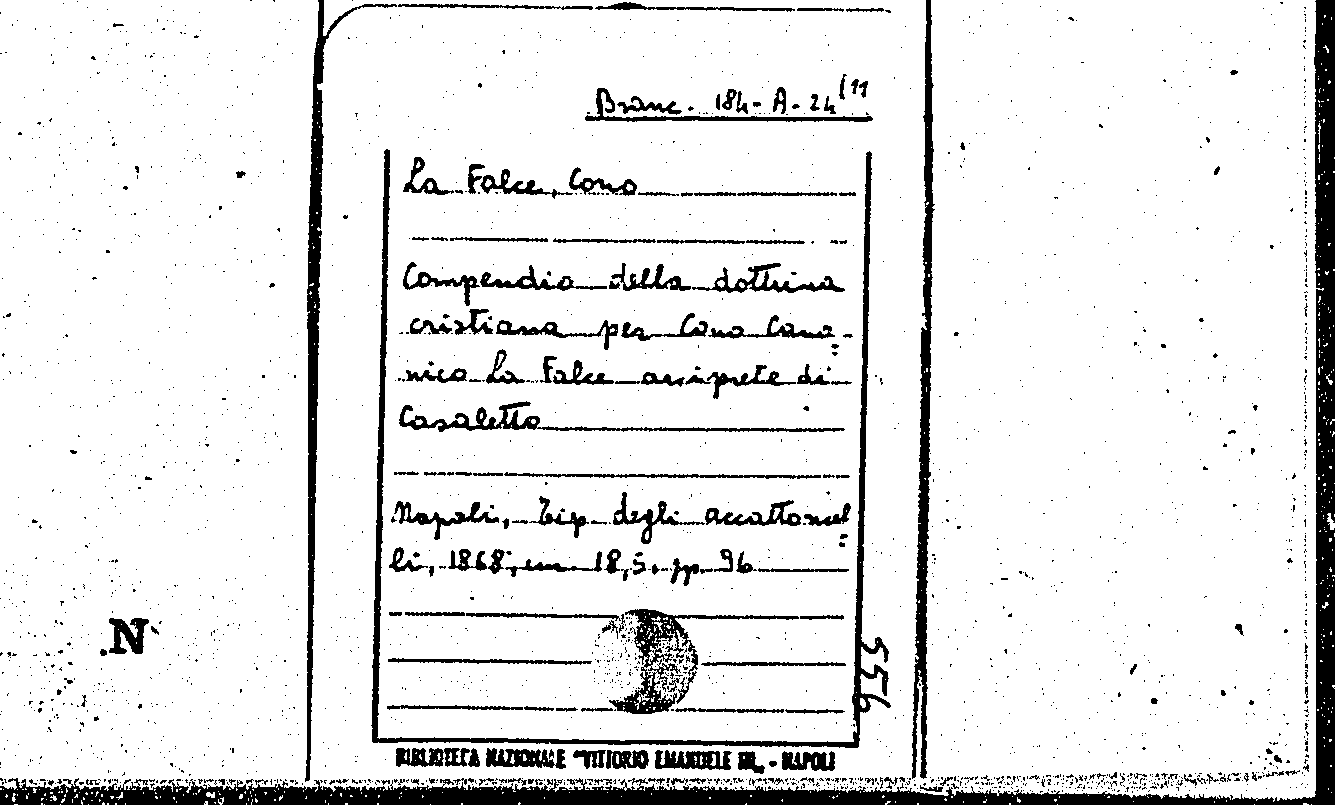 Branc. 184-A-24(11
La Falce, Cono
Compendio della dottrina
cristiana per Cono Cano=
nico La Falce arciprete di
Casaletto
Napoli, Tip. degli accattoncel=
li, 1868, cm. 18,5. pp. 96
N
556
BIBLIOTECA NAZIONALE "VITTORIO EMANUELE III„ - NAPOLI